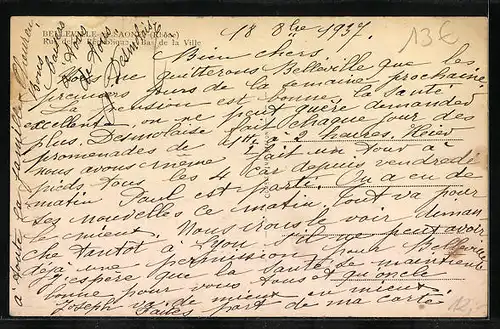 BELLEVILLE-S-SAONE (Rhône)
Rue de la République - Bas de la Ville
13€
18 8bre 1937.
Bien chers,
Nous ne quitterons Belleville que les
premiers jours de la semaine prochaine
La pension est bonne la santé
excellente on ne peut guère demander
plus. Desmolaise fait chaque jour des
promenades de 1h½ à 2 heures. Hier
nous avons même fait un tour à
pieds tous les 4 car depuis vendredi
matin Paul est parti. On a eu de
ses nouvelles ce matin, tout va pour
le mieux. Nous irons le voir diman
che tantôt à Lyon s'il ne peut avoir
déjà une permission pour Belleville
J'espère que la santé se maintient
bonne pour vous tous et qu'oncle
Joseph va de mieux en mieux.
Faites part de ma carte
à toute la famille
Bons
de nous
Desmolaise
12,